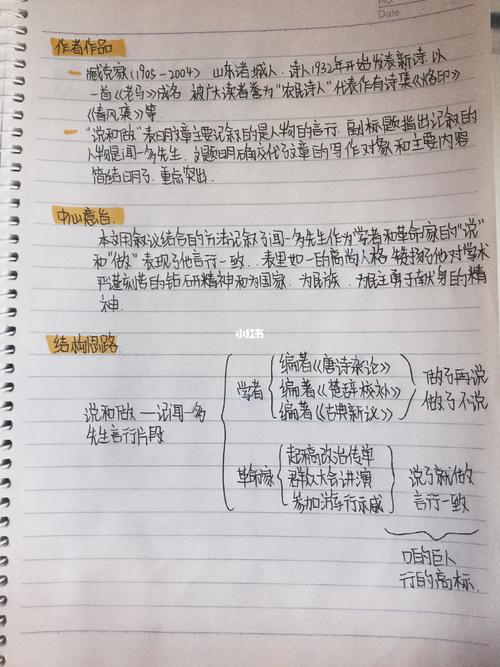 No.
Date
作者作品
一 臧克家(1905-2004) 山东诸城人.诗人1932年开始发表新诗.以
一首《老马》成名 被广大读者誉为"农民诗人"代表作有诗集《烙印》
《春风集》等.
一 "说和做"表明文章主要记叙的是人物的言行.副标题指出记叙的
人物是闻一多先生.文题明确交代了文章的写作对象和主要内容
简结明了.重点突出.
中心意旨.
本文用叙议结合的方法记叙了闻一多先生作为学者和革命家的"说"
和"做"表现了他言行一致.表里如一的高尚人格 赞扬了他对学术
严谨刻苦的钻研精神和为国家.为民族.为民主勇于献身的精
神.
小红书
结构思路.
说和做—记闻一多
先生言行片段
学者
编著《唐诗杂论》
编著《楚辞校补》
编著《古典新议》
做了再说
做了不说
革命家
起稿政治传单
群众大会讲演
参加游行示威
说了就做
言行一致
口的巨人
行的高标.